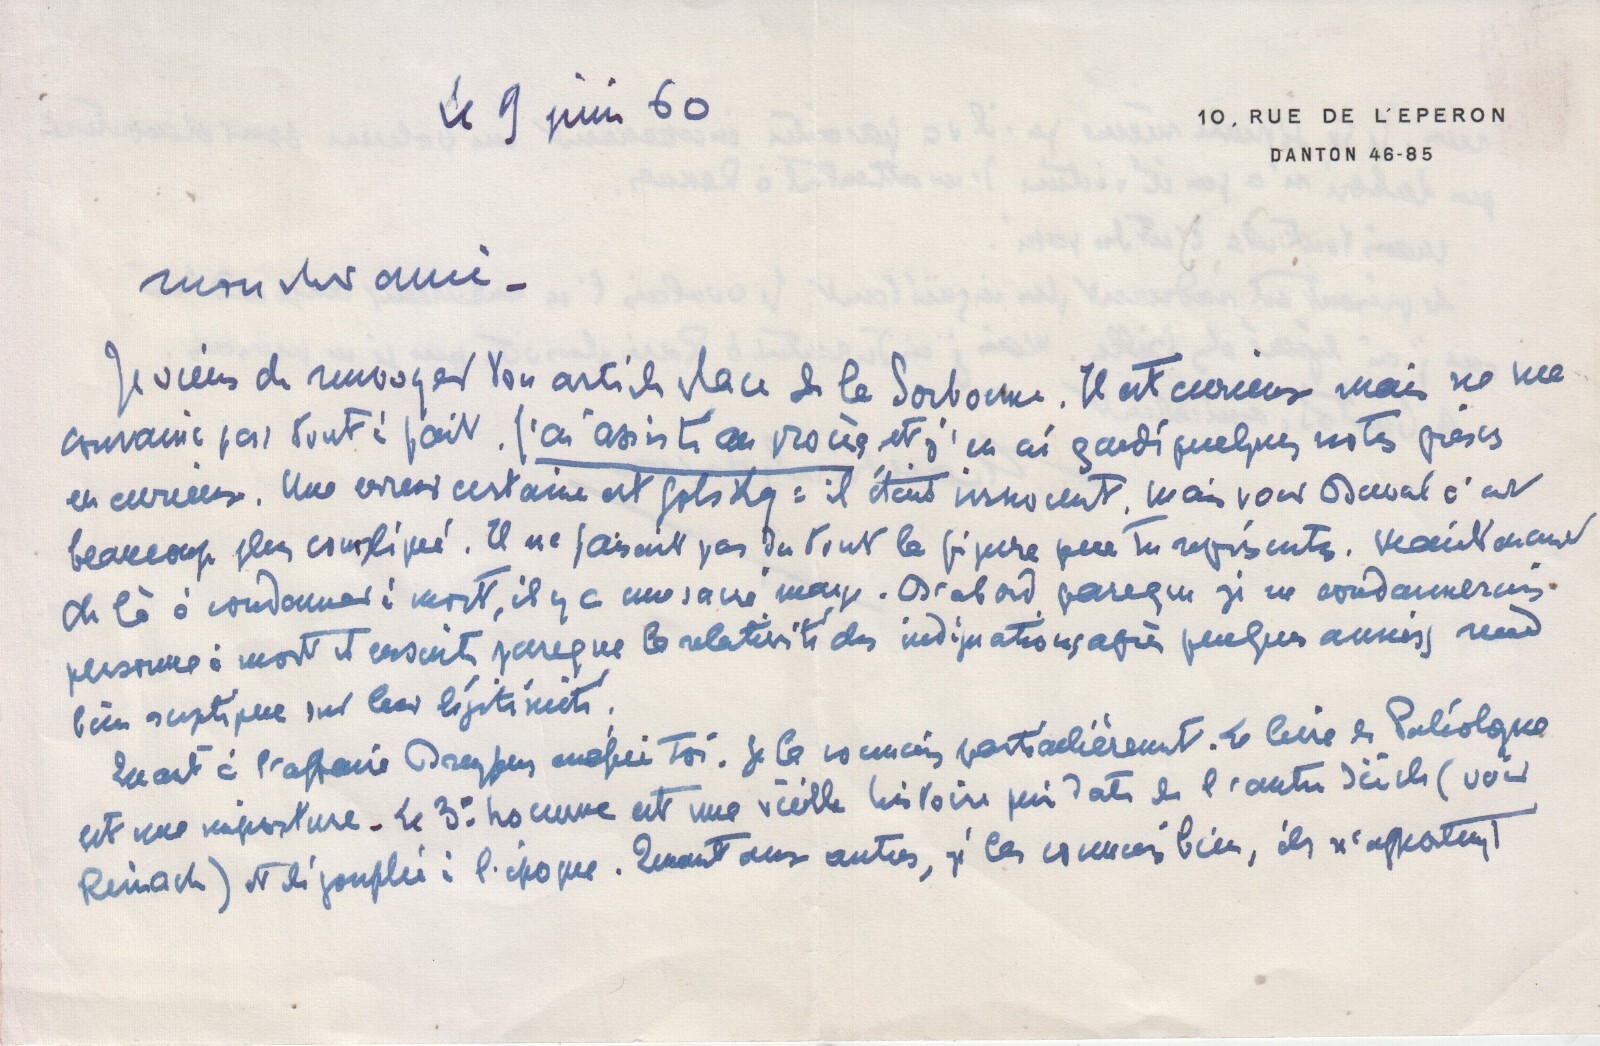 Le 9 juin 60
10, RUE DE L'EPERON
DANTON 46-85
mon cher ami -
Je viens de renvoyer ton article place de la Sorbonne. Il est curieux mais ne me
convainc pas tout à fait. J'ai assisté au procès et j'en ai gardé quelques notes prises
en curieux. Une erreur certaine est Golsky : il était innocent. Mais pour Duval c'est
beaucoup plus compliqué. Il ne faisait pas du tout la figure que tu représentes. Maintenant
de là à condamner à mort, il y a une sacré marge. D'abord parce que je ne condamnerais
personne à mort et ensuite parce que la relativité des indignations, après quelques années, rend
bien sceptique sur leur légitimité.
Quant à l'affaire Dreyfus toi. Je la connais particulièrement. Le livre de Paléologue
est une imposture. Le 3e homme est une vieille histoire qui date de l'autre siècle (voir
Reinach) et dégonflée à l'époque. Quant aux autres, je les connais bien, ils n'apportent